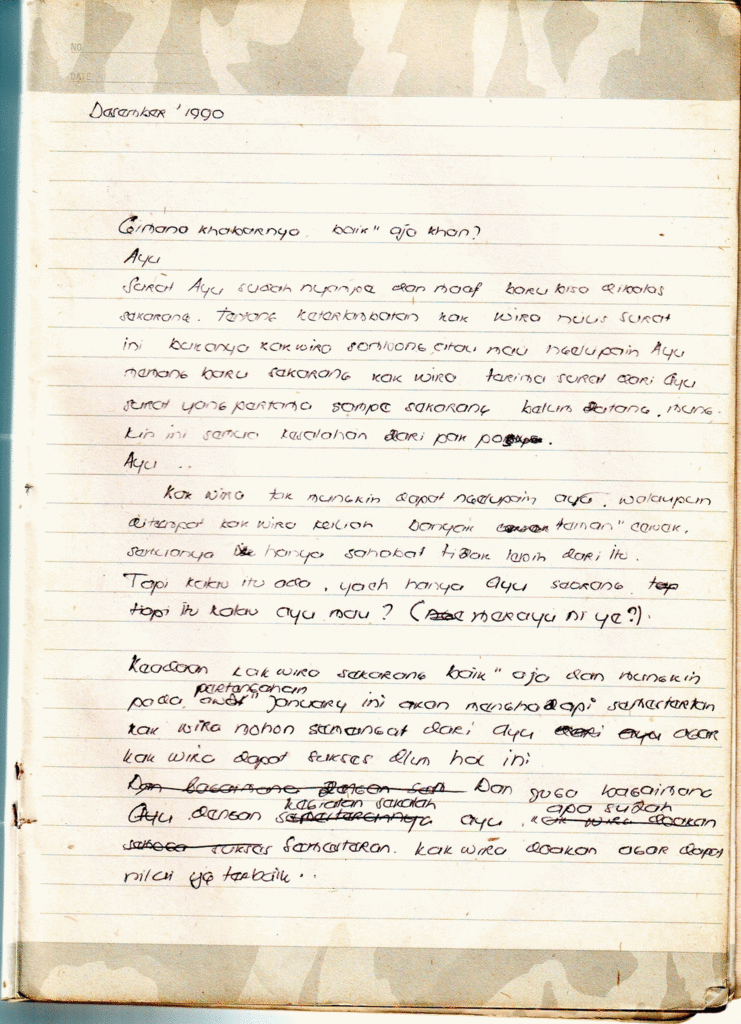 NO.
DATE
Desember '1990
Gimana khabarnya. baik" aja khan?
Ayu
Surat Ayu sudah nyampe dan maaf baru bisa dibalas
sekarang. Tentang keterlambatan kak wira nulis surat
ini bukanya kak wira sombong, atau mau ngelupain Ayu
memang baru sekarang kak wira terima surat dari Ayu
surat yang pertama sampe sekarang belum datang, mung-
kin ini semua kesalahan dari pak pos.
Ayu ..
Kak wira tak mungkin dapat ngelupain ayu, walaupun
ditempat kak wira keliah banyak teman" cewek,
semuanya hanya sahabat tidak lebih dari itu.
Tapi kalau itu ada, yach hanya Ayu seorang. tap
tapi itu kalau ayu mau? ( merayu ni ye?).
Keadaan kak wira sekarang baik" aja dan mungkin
pertengahan
pada awal" january ini akan menghadapi semesteran
kak wira mohon semangat dari ayu dari ayu agar
kak wira dapat sukses dlm hal ini
Dan bagaimana dengan Dan juga bagaimana
kegiatan sekolah apa sudah
Ayu dengan semesterannya ayu, kak wira doakan
semoga sukses Semesteran. kak wira doakan agar dapat
nilai yg terbaik..